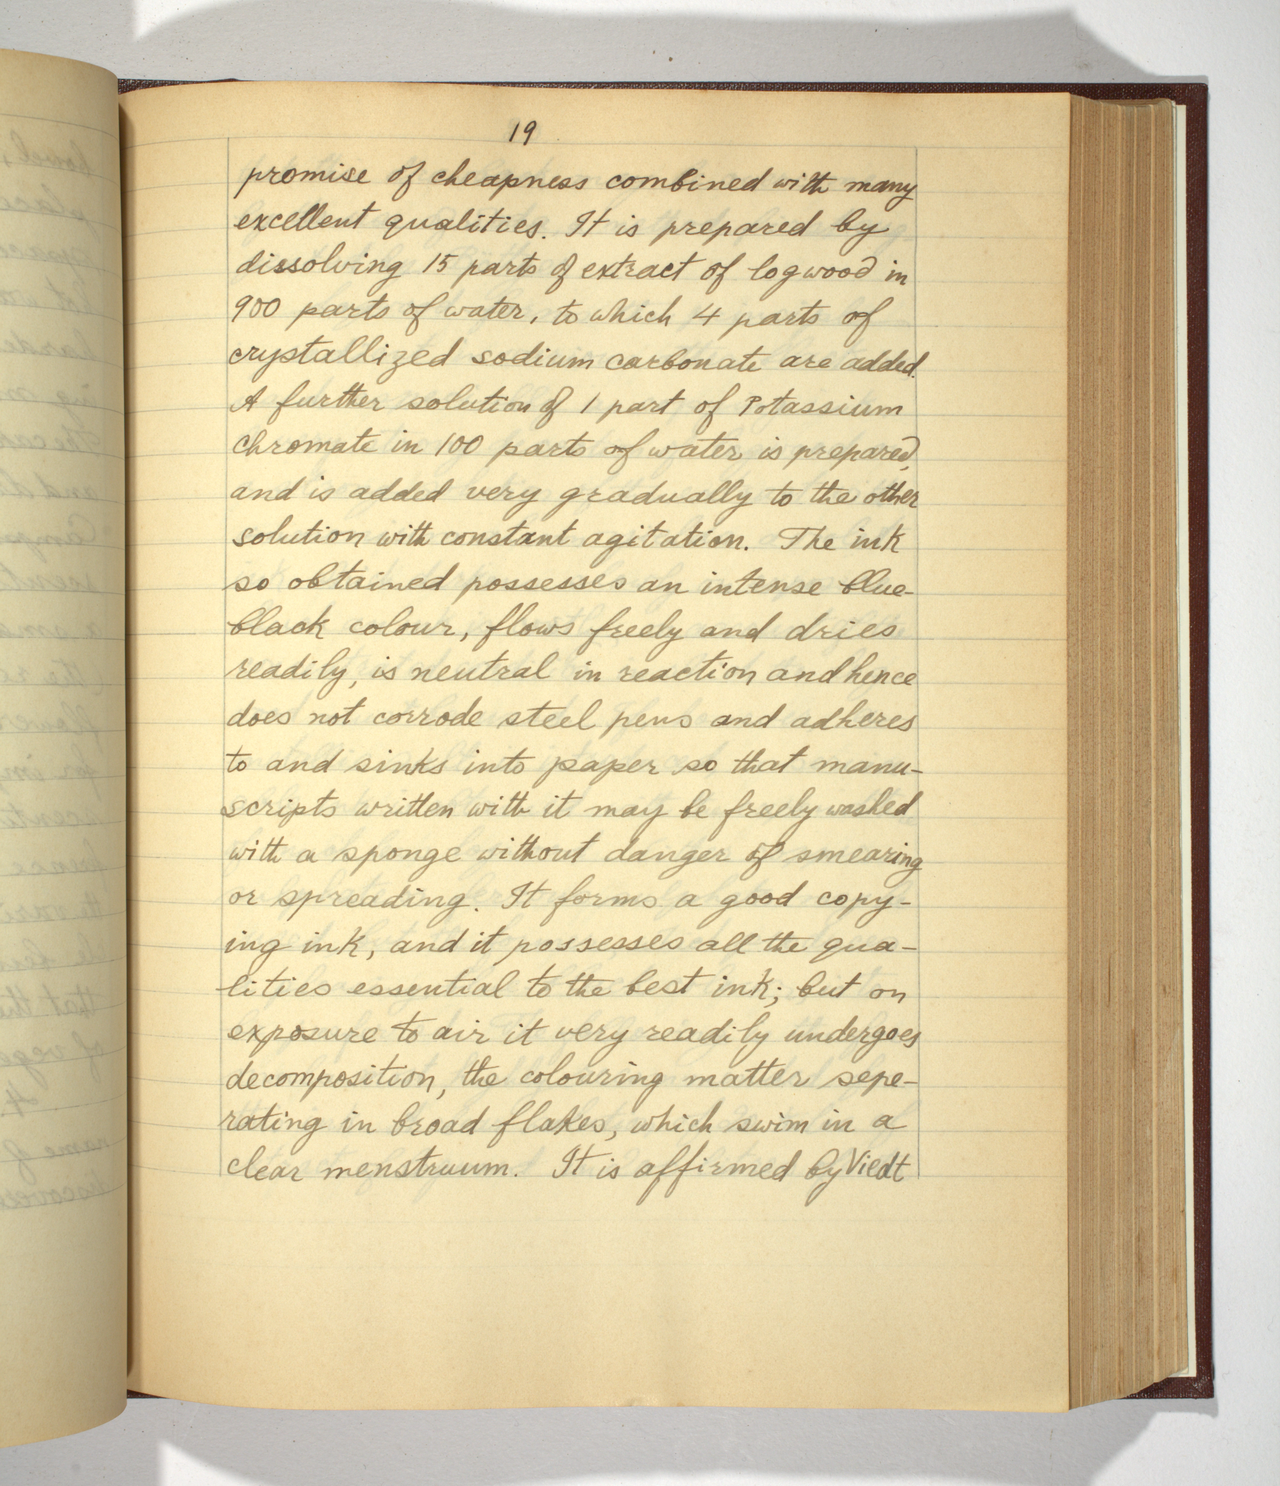 19
promise of cheapness combined with many
excellent qualities. It is prepared by
dissolving 15 parts of extract of logwood in
900 parts of water, to which 4 parts of
crystallized sodium carbonate are added.
A further solution of 1 part of Potassium
chromate in 100 parts of water is prepared,
and is added very gradually to the other
solution with constant agitation. The ink
so obtained possesses an intense blue-
black colour, flows freely and dries
readily, is neutral in reaction and hence
does not corrode steel pens and adheres
to and sinks into paper so that manu-
scripts written with it may be freely washed
with a sponge without danger of smearing
or spreading. It forms a good copy-
ing ink, and it possesses all the qua-
lities essential to the best ink; but on
exposure to air it very readily undergoes
decomposition, the colouring matter sepe-
rating in broad flakes, which swim in a
clear menstruum. It is affirmed by Viedt